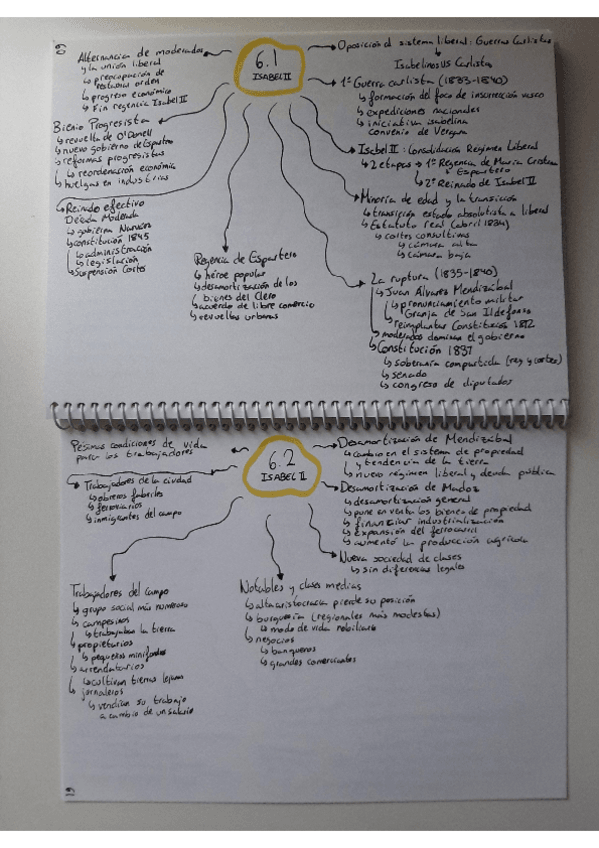 6.1
ISABEL II
Oposición al sistema liberal: Guerras Carlistas
↳ Isabelinos VS Carlistas
1ª Guerra carlista (1833-1840)
↳ formación del foco de insurrección vasco
↳ expediciones nacionales
↳ iniciativa isabelina
convenio de Vergara
Isabel II: Consolidación Régimen Liberal
↳ 2 etapas → 1º Regencia de María Cristina
↳ Espartero
2º Reinado de Isabel II
Minoría de edad y la transición
↳ transición estado absolutista a liberal
↳ Estatuto real (abril 1834)
↳ cortes consultivas
↳ cámara alta
↳ cámara baja
La ruptura (1835-1840)
↳ Juan Álvarez Mendizábal
↳ pronunciamiento militar
Granja de San Ildefonso
↳ reimplantar Constitución 1812
↳ moderados dominan el gobierno
↳ Constitución 1837
↳ soberanía compartida (rey y cortes)
↳ senado
↳ congreso de diputados
Regencia de Espartero
↳ héroe popular
↳ desamortización de los
bienes del Clero
↳ acuerdo de libre comercio
↳ revueltas urbanas
Reinado efectivo
Década Moderada
↳ gobierno Narváez
↳ constitución 1845
↳ administración
↳ legislación
↳ suspensión Cortes
Bienio Progresista
↳ revuelta de O'Donell
↳ nuevo gobierno de Espartero
↳ reformas progresistas
↳ reordenación económica
↳ huelgas en industrias
Alternancia de moderados
y la unión liberal
↳ preocupación de
restaurar orden
↳ progreso económico
↳ Fin regencia Isabel II
6.2
ISABEL II
Desamortización de Mendizábal
↳ cambio en el sistema de propiedad
y tendencia de la tierra
↳ nuevo régimen liberal y deuda pública
Desamortización de Madoz
↳ desamortización general
↳ pone en venta los bienes de propiedad
↳ financiar industrialización
↳ expansión del ferrocarril
↳ aumentó la producción agrícola
Nueva sociedad de clases
↳ sin diferencias legales
Notables y clases medias
↳ alta aristocracia pierde su posición
↳ burguesía (regionales más modestas)
↳ modo de vida nobiliario
↳ negocios
↳ banqueros
↳ grandes comerciales
Trabajadores del campo
↳ grupo social más numeroso
↳ campesinos
↳ trabajaban la tierra
↳ propietarios
↳ pequeños minifundios
↳ arrendatarios
↳ cultivan tierras lejanas
↳ jornaleros
↳ vendían su trabajo
a cambio de un salario
Trabajadores de la ciudad
↳ obreros fabriles
↳ ferroviarios
↳ inmigrantes del campo
Pésimas condiciones de vida
para los trabajadores